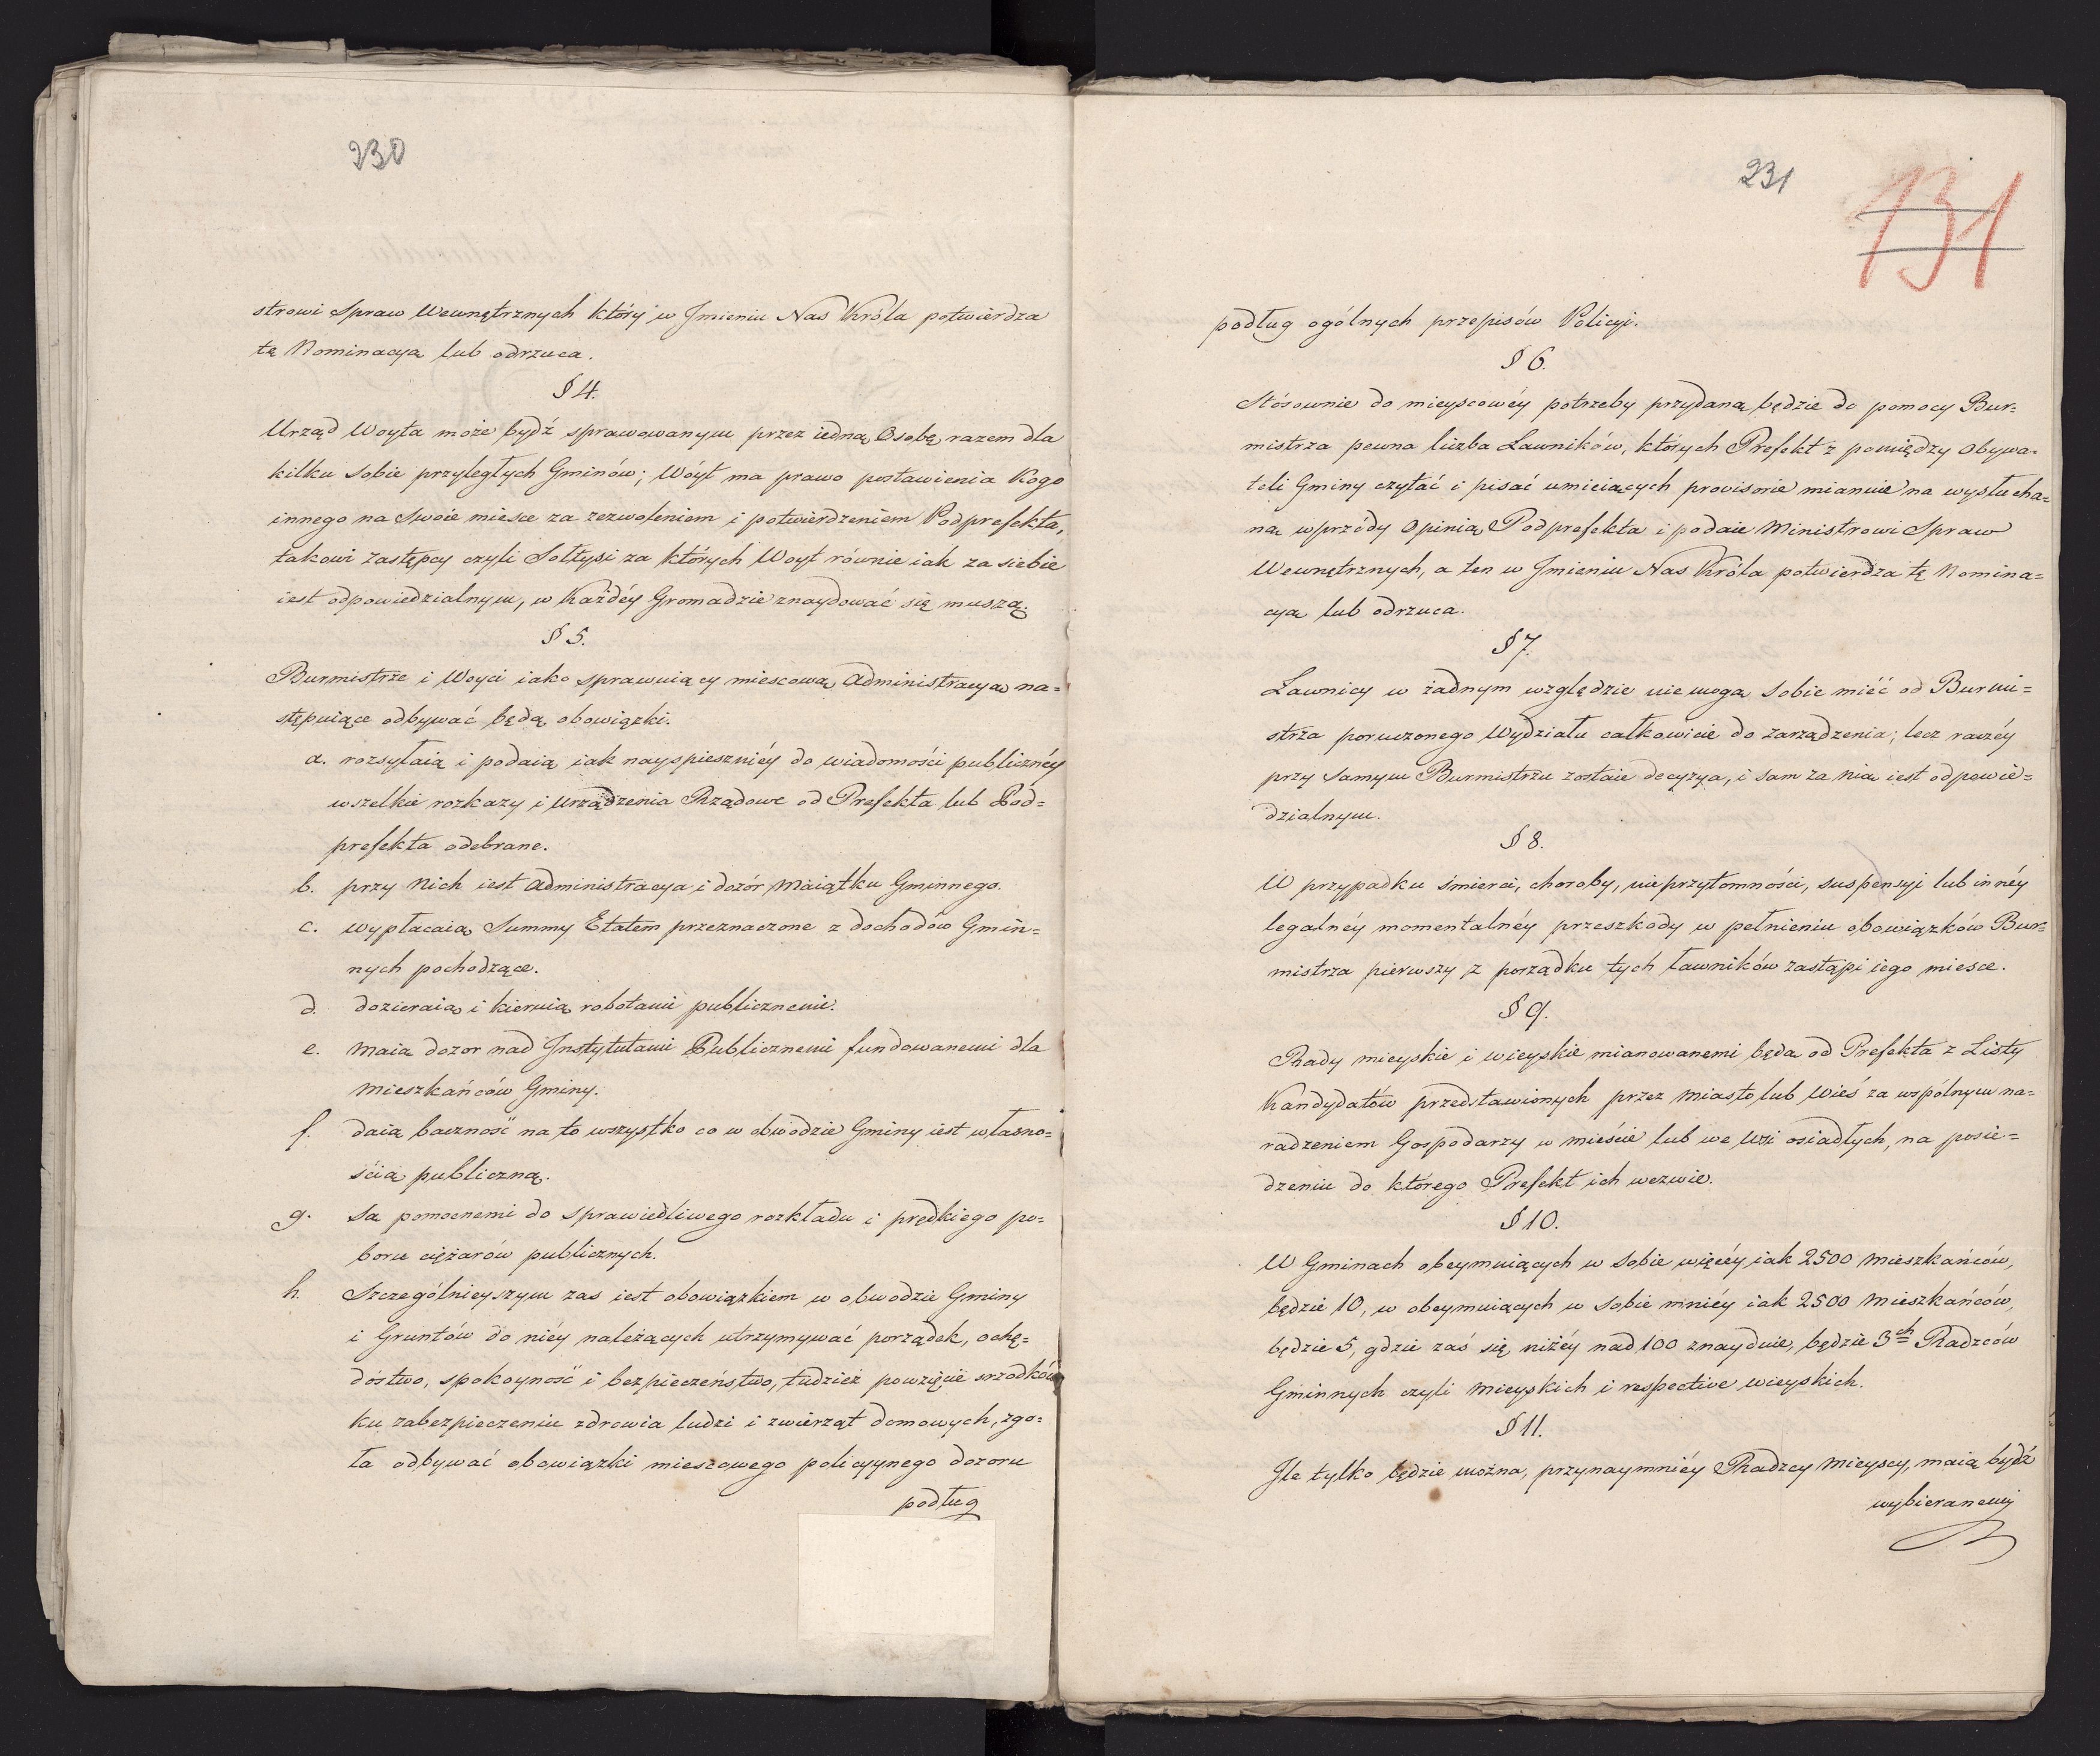 230
strowi Spraw Wewnętrznych który w Jmieniu Nas Króla potwierdza
tę Nominacyą lub odrzuca.
§ 4.
Urząd Woyta może bydź sprawowanym przez iedną Osobę razem dla
kilku sobie przyległych Gminów; Wóyt ma prawo postawienia Kogo
innego na Swoie miesce za zezwoleniem i potwierdzeniem Podprefekta,
takowi zastępcy czyli Sołtysi za których Woyt równie iak za siebie
iest odpowiedzialnym, w Każdéy Gromadzie znaydować się muszą.
§ 5.
Burmistrze i Woyci iako sprawuiący miescową Administracyą na=
stępuiące odbywać będą obowiązki.
a. rozsyłaią i podaią iak nayspieszniéy do wiadomości publicznéy
wszelkie rozkazy i urządzenia Rządowe od Prefekta lub Pod=
prefekta odebrane.
b. przy Nich iest Administracya i dozór Maiątku Gminnego.
c. wypłacaią Summy Etatem przeznaczone z dochodów Gmin=
nych pochodzące.
d. dozieraią i kieruią robotami publicznemi.
e. Maią dozor nad Jnstytutami Publicznemi fundowanemi dla
Mieszkańców Gminy.
f. daią baczność na to wszystko co w obwodzie Gminy iest własno=
ścią publiczną.
g. Są pomocnemi do sprawiedliwego rozkładu i prędkiego po=
boru ciężarów publicznych.
h. Szczególnieyszym zas iest obowiązkiem w obwodzie Gminy
i Gruntów do niéy należących utrzymywać porządek, ochę=
dóstwo, spokoyność i bezpieczeństwo, tudzież powzięcie srzodków
ku zabezpieczeniu zdrowia ludzi i zwierząt domowych, zgo=
ła odbywać obowiązki miescowego policyynego dozoru
podług
231
131
podług ogólnych przepisów Policyi.
§ 6.
Stósownie do mieyscowéy potrzeby przydaną będzie do pomocy Bur=
mistrza pewna liczba Ławników, których Prefekt z pomiędzy Obywa=
teli Gminy czytać i pisać umieiących provisorie mianuie na wysłucha=
ną wprzódy Opinią Podprefekta i podaie Ministrowi Spraw
Wewnętrznych, a ten w Jmieniu Nas Króla potwierdza tę Nomina=
cyą lub odrzuca.
§ 7.
Ławnicy w żadnym względzie nie mogą sobie miéć od Burmi=
strza poruczonego Wydziału całkowicie do zarządzenia; lecz raczéy
przy samym Burmistrzu zostaie decyzya, i sam za nią iest odpowie=
dzialnym.
§ 8.
W przypadku śmierci, choroby, nieprzytomności, suspensyi lub innéy
legalnéy momentalnéy przeszkody w pełnieniu obowiązków Bur=
mistrza pierwszy z porządku tych ławników zastąpi iego miesce.
§ 9.
Rady mieyskie i wieyskie mianowanemi będą od Prefekta z Listy
Kandydatów przedstawionych przez Miasto lub Wieś za wspólnym na=
radzeniem Gospodarzy w mieście lub we wsi osiadłych, na posie=
dzeniu do którego Prefekt ich wezwie.
§ 10.
W Gminach obeymuiących w sobie więcéy iak 2500 Mieszkańców,
będzie 10, w obeymuiących w sobie mniéy iak 2500 Mieszkańców,
będzie 5, gdzie zaś się niżéy nad 100 znayduie, będzie 3ch Radzców
Gminnych czyli Mieyskich i respective wieyskich.
§ 11.
Jle tylko będzie można, przynaymniéy Radzcy Mieyscy, maią bydź
wybieranemi